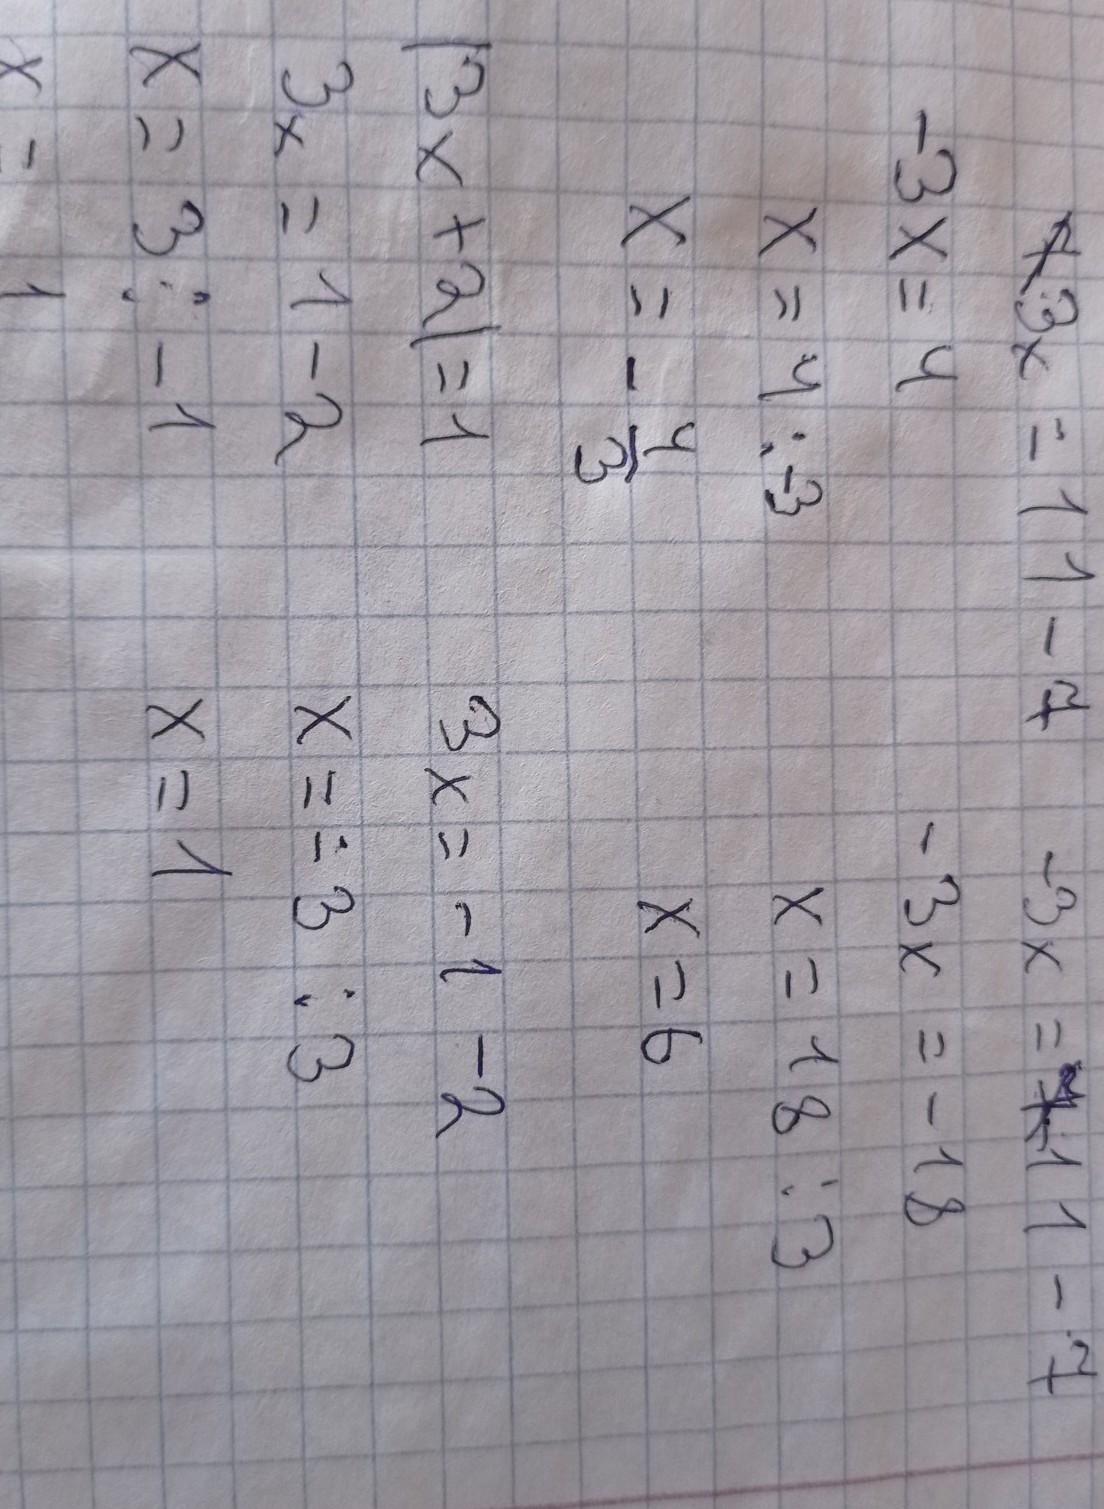 -3x = 11 - 7 -3x = -11 - 7
-3x = 4 -3x = -18
x = 4 : -3 x = 18 : 3
x = - 4/3 x = 6
|3x + 2| = 1 3x = -1 - 2
3x = 1 - 2 x = -3 : 3
x = 3 : -1 x = 1
x =